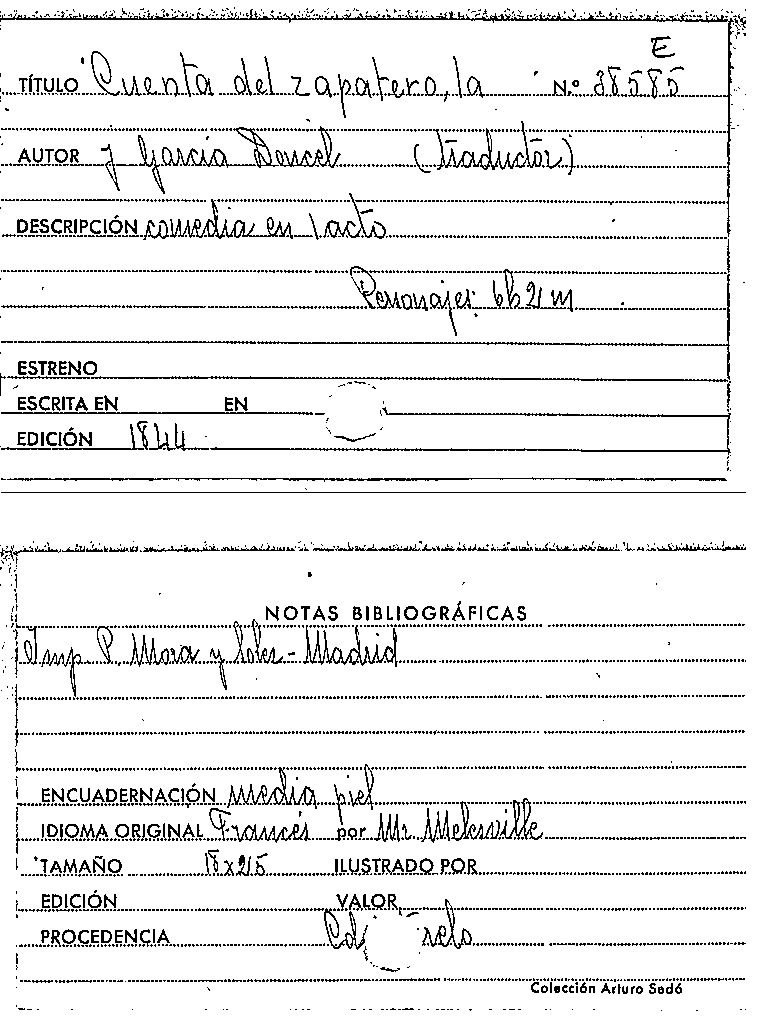 E
TÍTULO Cuenta del zapatero, la N.º 38585
AUTOR J García Doncel (traductor)
DESCRIPCIÓN comedia en 1 acto
Personajes: 6h 21 m
ESTRENO
ESCRITA EN EN
EDICIÓN 1844
NOTAS BIBLIOGRÁFICAS
Imp P. Mora y Soler - Madrid
ENCUADERNACIÓN media piel
IDIOMA ORIGINAL Francés por Mr Melesville
TAMAÑO 18x215 ILUSTRADO POR
EDICIÓN VALOR
PROCEDENCIA
Colección Arturo Sedó